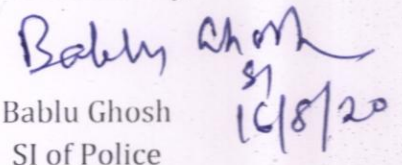 Bablu Ghosh
SI
16/8/20
Bablu Ghosh
SI of Police